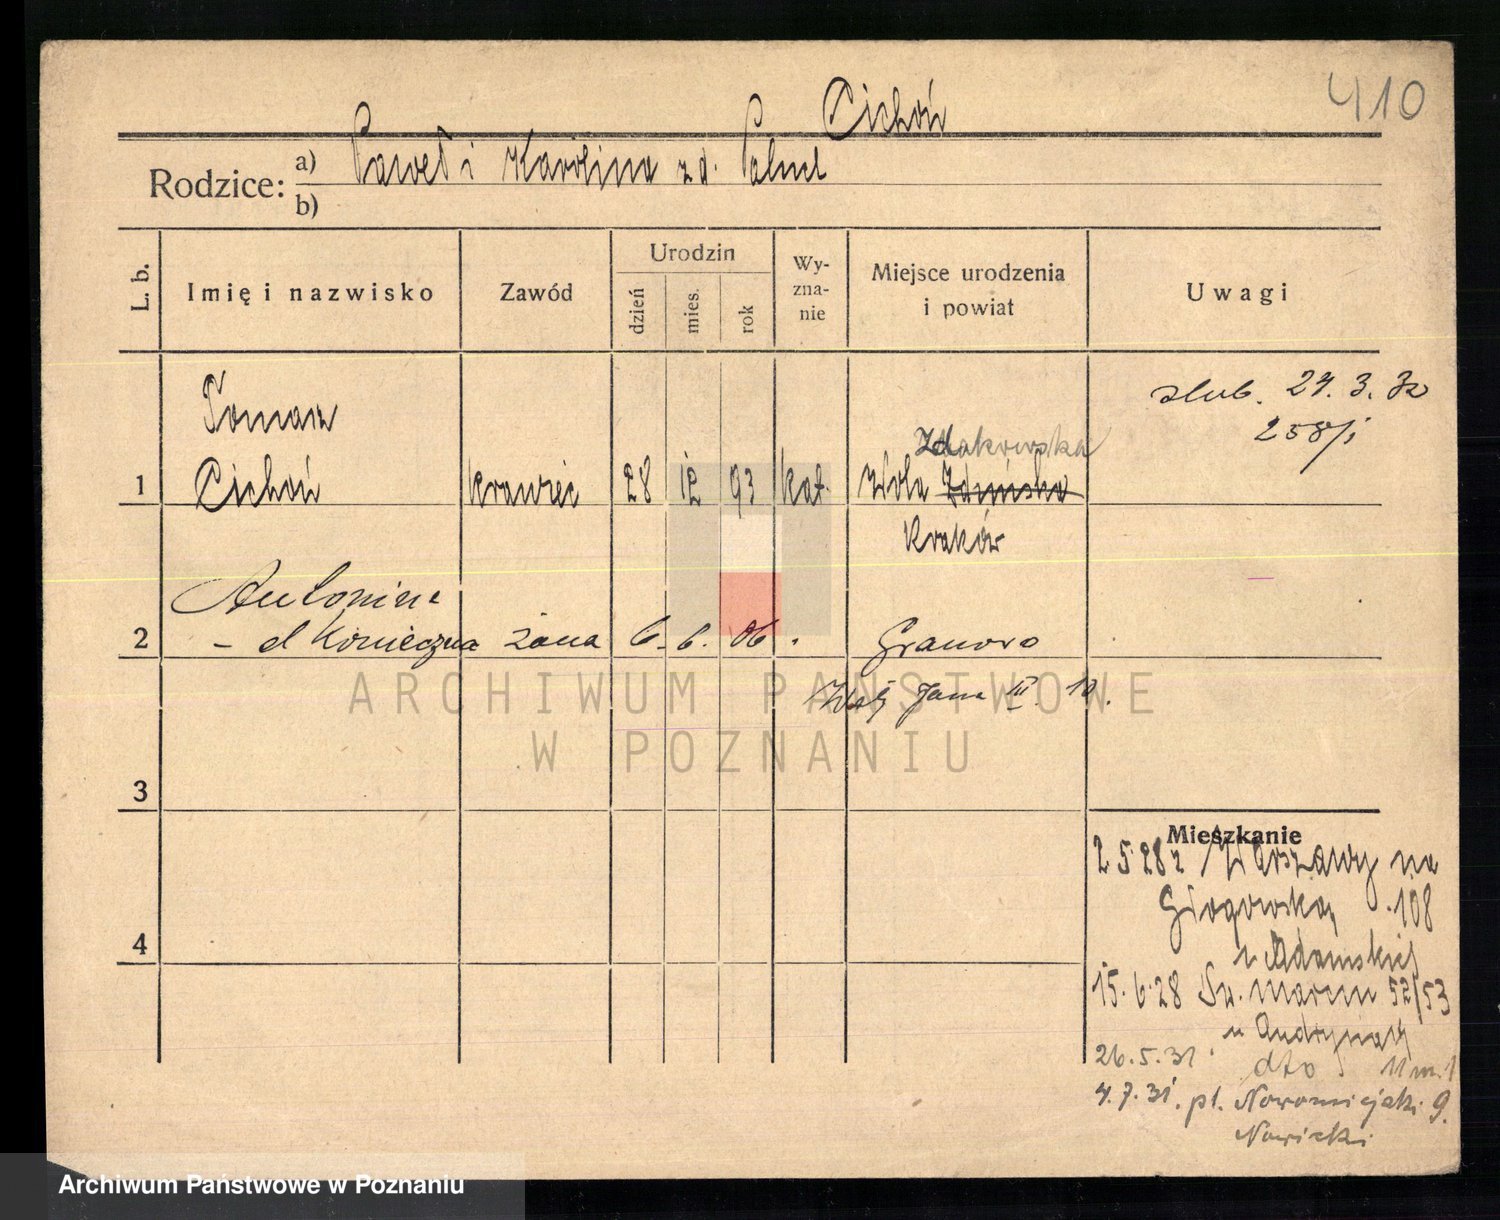 410
Cichoń
Rodzice: a) Paweł i Karolina z d.
b)
L. b.
Imię i nazwisko
Zawód
Urodzin
dzień
mies.
rok
Wy-
zna-
nie
Miejsce urodzenia
i powiat
Uwagi
ślub. 27. 3. 32
258/i
Tomasz
Zdakowska
1 Cichoń krawiec 28 12 93 kat. Wola Zduńska
Kraków
Antonina
2 - d Konieczna żona 6. 6. 06. Granowo
Jana III. 10.
3
4
Mieszkanie
2 5 28 z Warszawy na
Głogowską 108
u Adamskiej
15. 6 28 Św. Marcin 52/53
u
26.5.31. dto 11 m. 1
4.7.31. pl. Nowomiejski 9.
Nowicki
ARCHIWUM PAŃSTWOWE
W POZNANIU
Archiwum Państwowe w Poznaniu